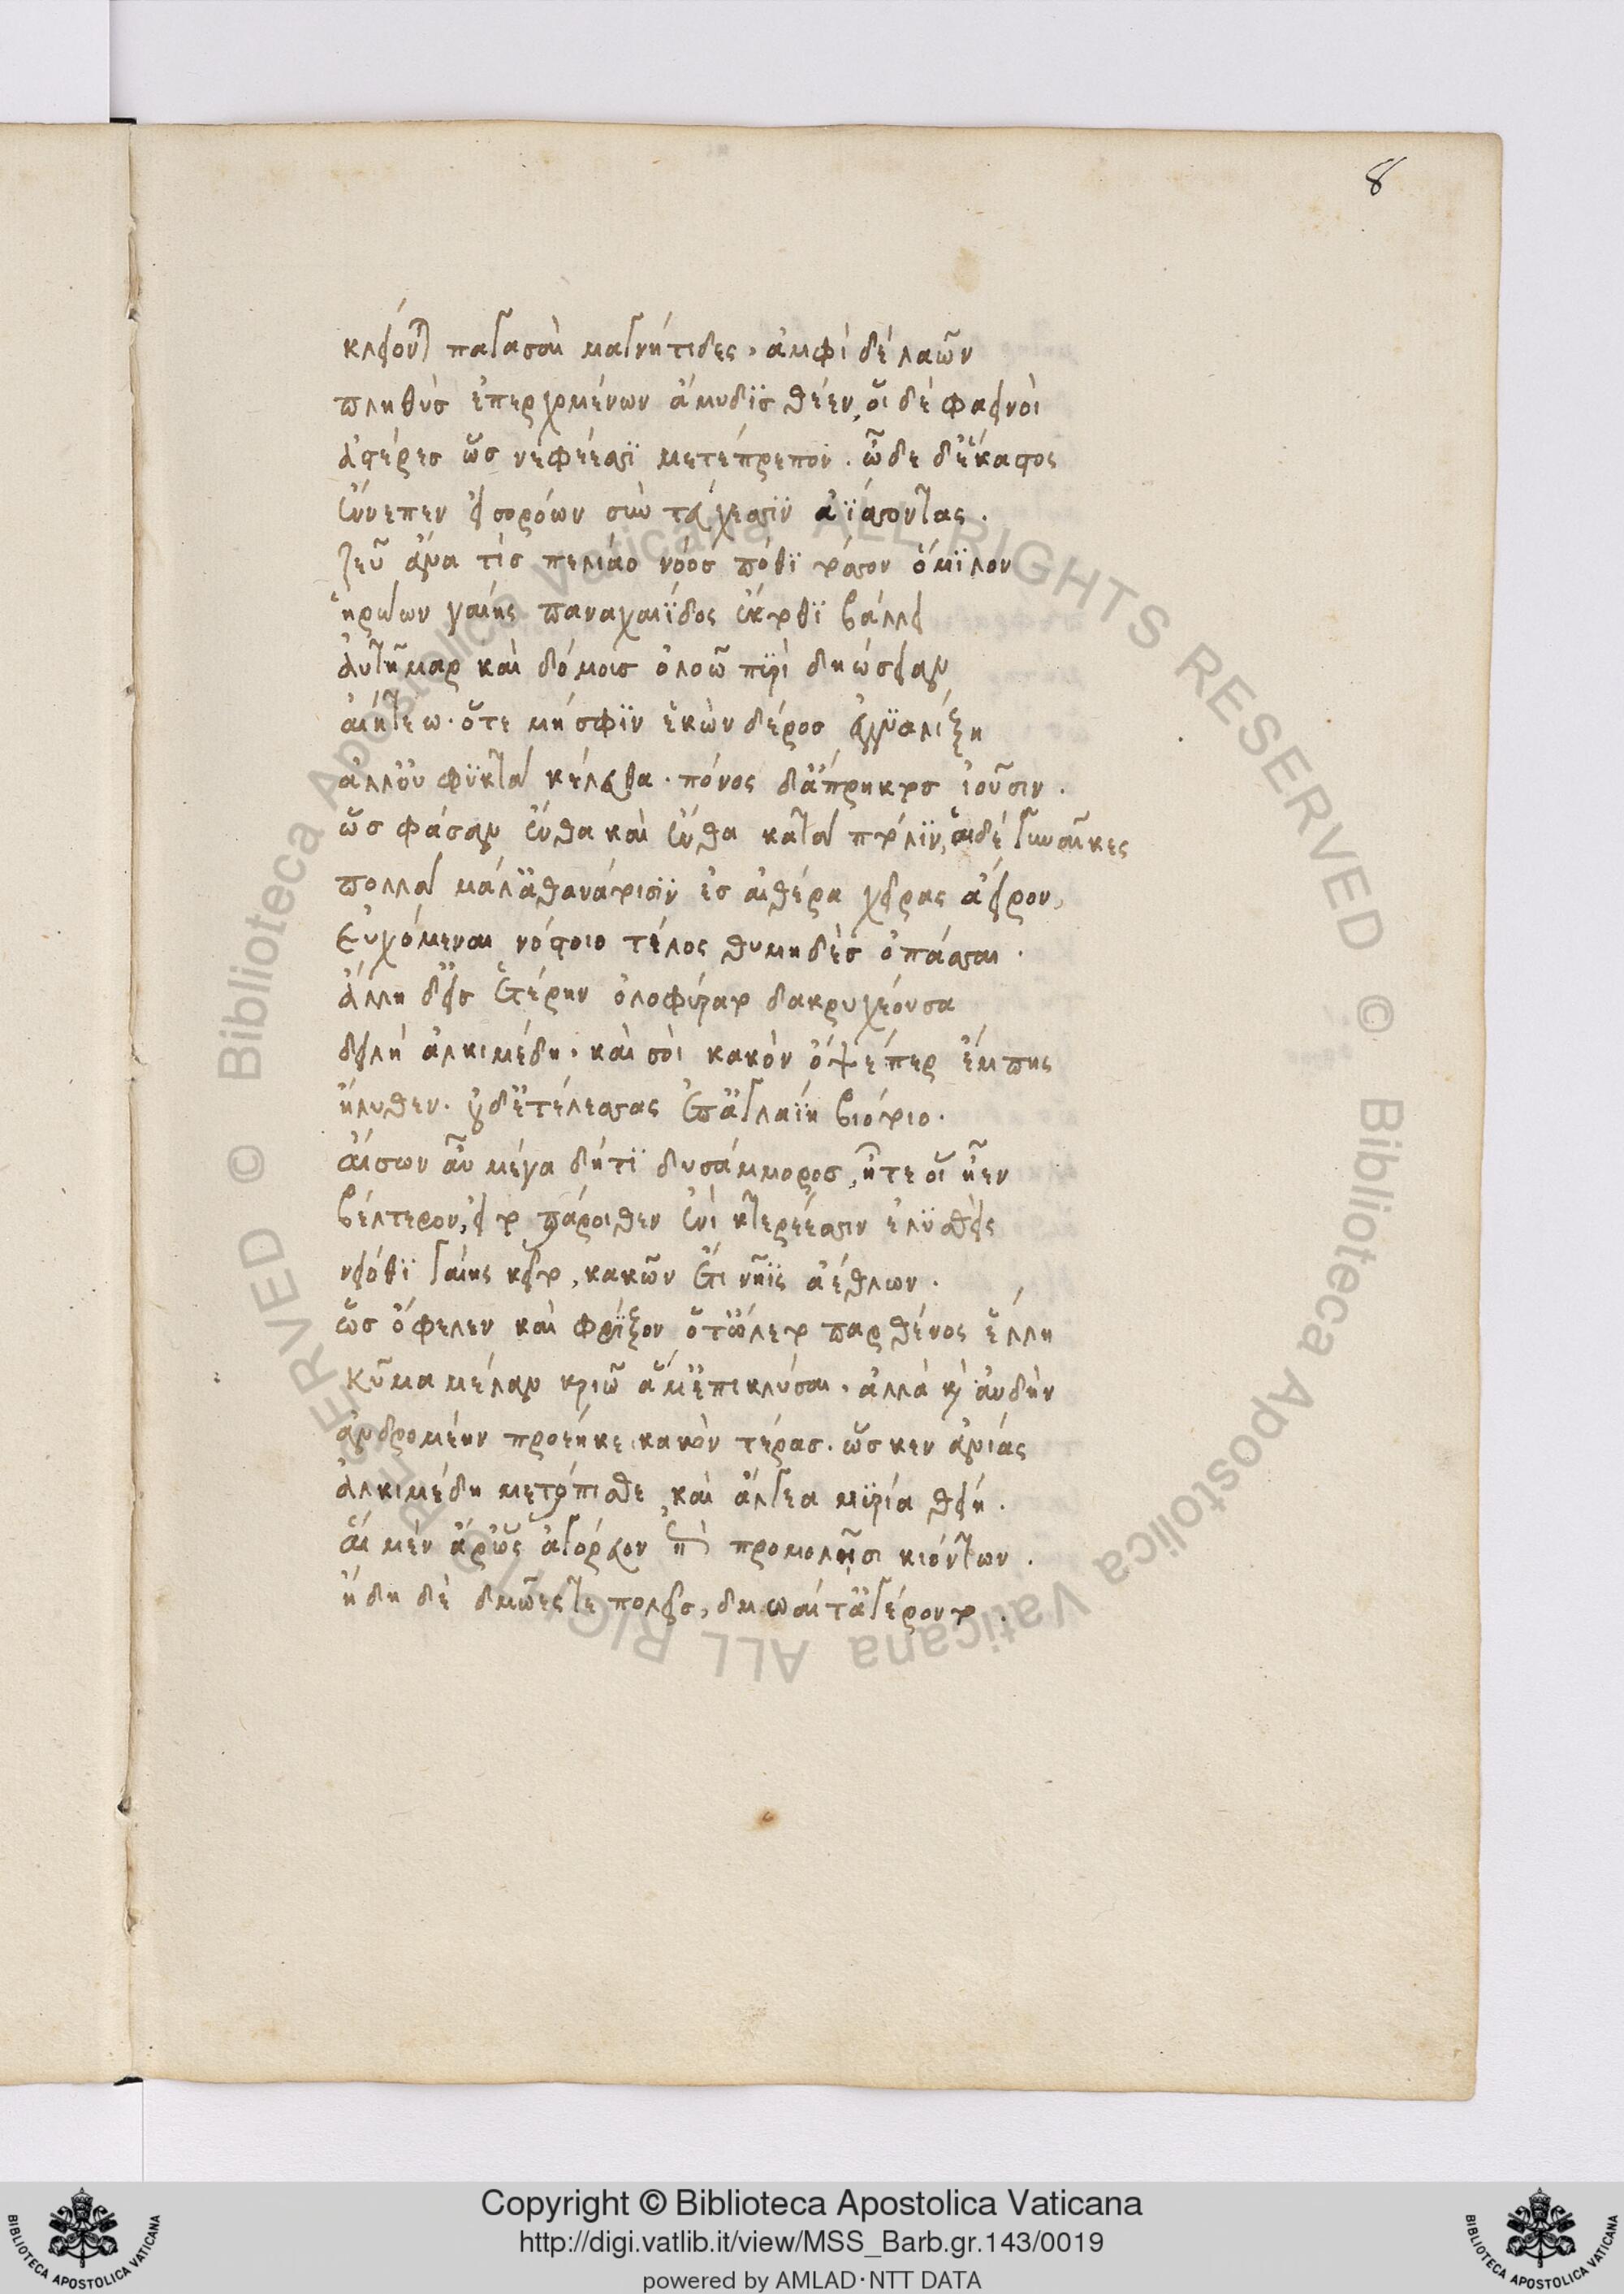 8
κλείονται παγασαὶ μαγνήτιδες. ἀμφὶ δὲ λαῶν
πληθὺσ ἐπερχομένων ἄμυδϊσ θέεν, οἵ δὲ φαεινοὶ
ἀστέρεσ ὥσ νεφέεσσϊ μετέπρεπον. ὧδε δ' ἕκαστος
ἔννεπεν εἰσορόων σὺν τεύχεσσϊν ἀϊσσοντας.
ζεῦ ἄνα τίσ πελίαο νόοσ πόθϊ τόσσον ὅμϊλον
ἡρώων γαίης παναχαιΐδος ἔκτοθϊ βάλλει
ἀυτῆμαρ καὶ δόμοισ ὀλοῶ πϋρὶ δηώσειαν
ἀιήτεω. ὅτε μή σφϊν ἑκὼν δέροσ ἐγγϋαλίξη
ἀλλ' ὀυ φϋκτὰ κέλευθα. πόνος δ' ἄπρηκτοσ ἰοῦσιν.
ὥσ φάσαν ἔνθα καὶ ἔνθα κατὰ πτόλϊν, ἁι δὲ γυναῖκες
πολλὰ μάλ' ἀθανάτοισϊν ἐσ αἰθέρα χεῖρας ἄειρον,
ἐυχόμεναι νόστοιο τέλος θυμηδὲσ ὀπάσσαι.
ἄλλη δ' εἰσ ἑτέρην ὀλοφύρατο δακρυχέουσα
δειλὴ ἀλκιμέδη. καὶ σὸι κακὸν ὀψέ περ ἔμπης
ἤλυθεν. οὐδ' ἐτέλεσσας ἐπ' ἀγλαΐη βιότοιο.
ἄισων ἂυ μέγα δή τϊ δυσάμμορος, ἦτε οἵ ἦεν
βέλτερον, εἰ τὸ πάροιθεν ἐνὶ κτερέεσσιν ἐλϋσθεὶς
νειόθϊ γαίης κεῖτο, κακῶν ἔτι νῆϊς ἀέθλων.
ὥσ ὄφελεν καὶ φρίξον ὅτ' ὤλετο παρθένος ἕλλη
κῦμα μέλαν κριῶ ἅμ' ἐπικλύσαι. ἀλλὰ καὶ ἀυδὴν
ἀνδρομέην προέηκε κακὸν τέρασ. ὥσ κεν ἀνίας
ἀλκιμέδη μετόπισθε καὶ ἄλγεα μϋρία θείη.
ἁι μὲν ἄρ' ὣς ἀγόρευον ἐπὶ προμολῆισι κιόντων.
ἤδη δὲ δμῶές τε πολεῖσ, δμωαί τ' ἀγέροντο.
© Biblioteca Apostolica Vaticana ALL RIGHTS RESERVED © Biblioteca Apostolica Vaticana ALL RIGHTS RESERVED
BIBLIOTECA APOSTOLICA VATICANA
Copyright © Biblioteca Apostolica Vaticana
http://digi.vatlib.it/view/MSS_Barb.gr.143/0019
powered by AMLAD·NTT DATA
BIBLIOTECA APOSTOLICA VATICANA